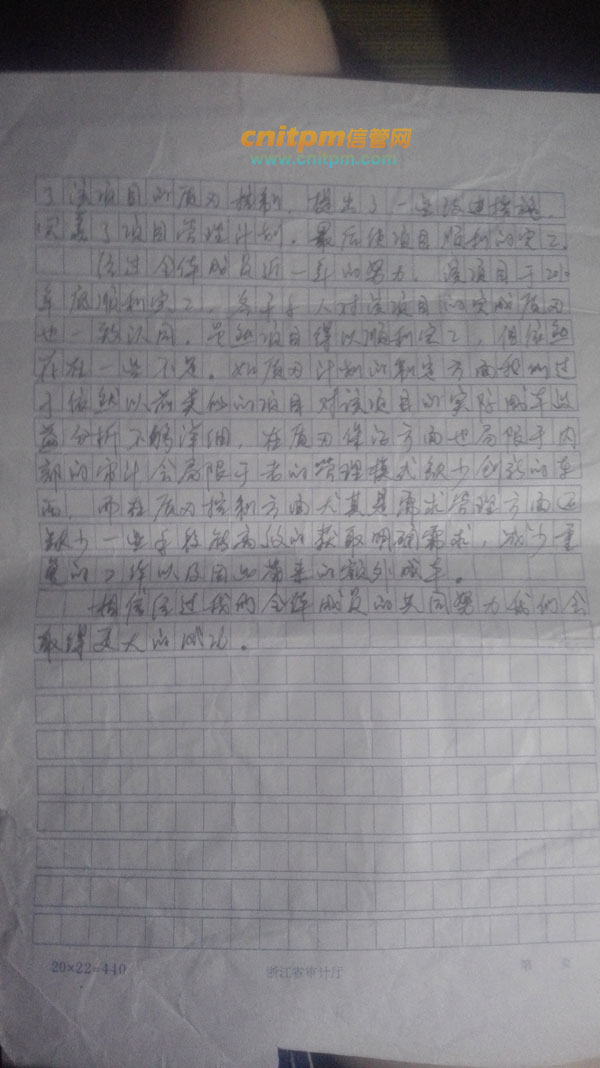 cnitpm信管网
www.cnitpm.com
了该项目的质量控制，提出了一些改进措施，
完善了项目管理计划，最后使项目顺利的完工。
经过全体成员近一年的努力，该项目于2010
年底顺利完工，各干系人对该项目的完成质量
也一致认同，虽然项目得以顺利完工，但依然
存在一些不足。如质量计划的制定方面我们过
于依然以前类似的项目对该项目的实际成本效
益分析不够详细，在质量保证方面也局限于内
部的审计会局限于老的管理模式缺少创新的东
西，而在质量控制方面尤其是需求管理方面还
缺少一些手段能高效的获取明确需求，减少重
复的工作以及因此带来的额外成本。
相信经过我们全体成员的共同努力我们会
取得更大的成功。
20×22=440
浙江省审计厅
第 页